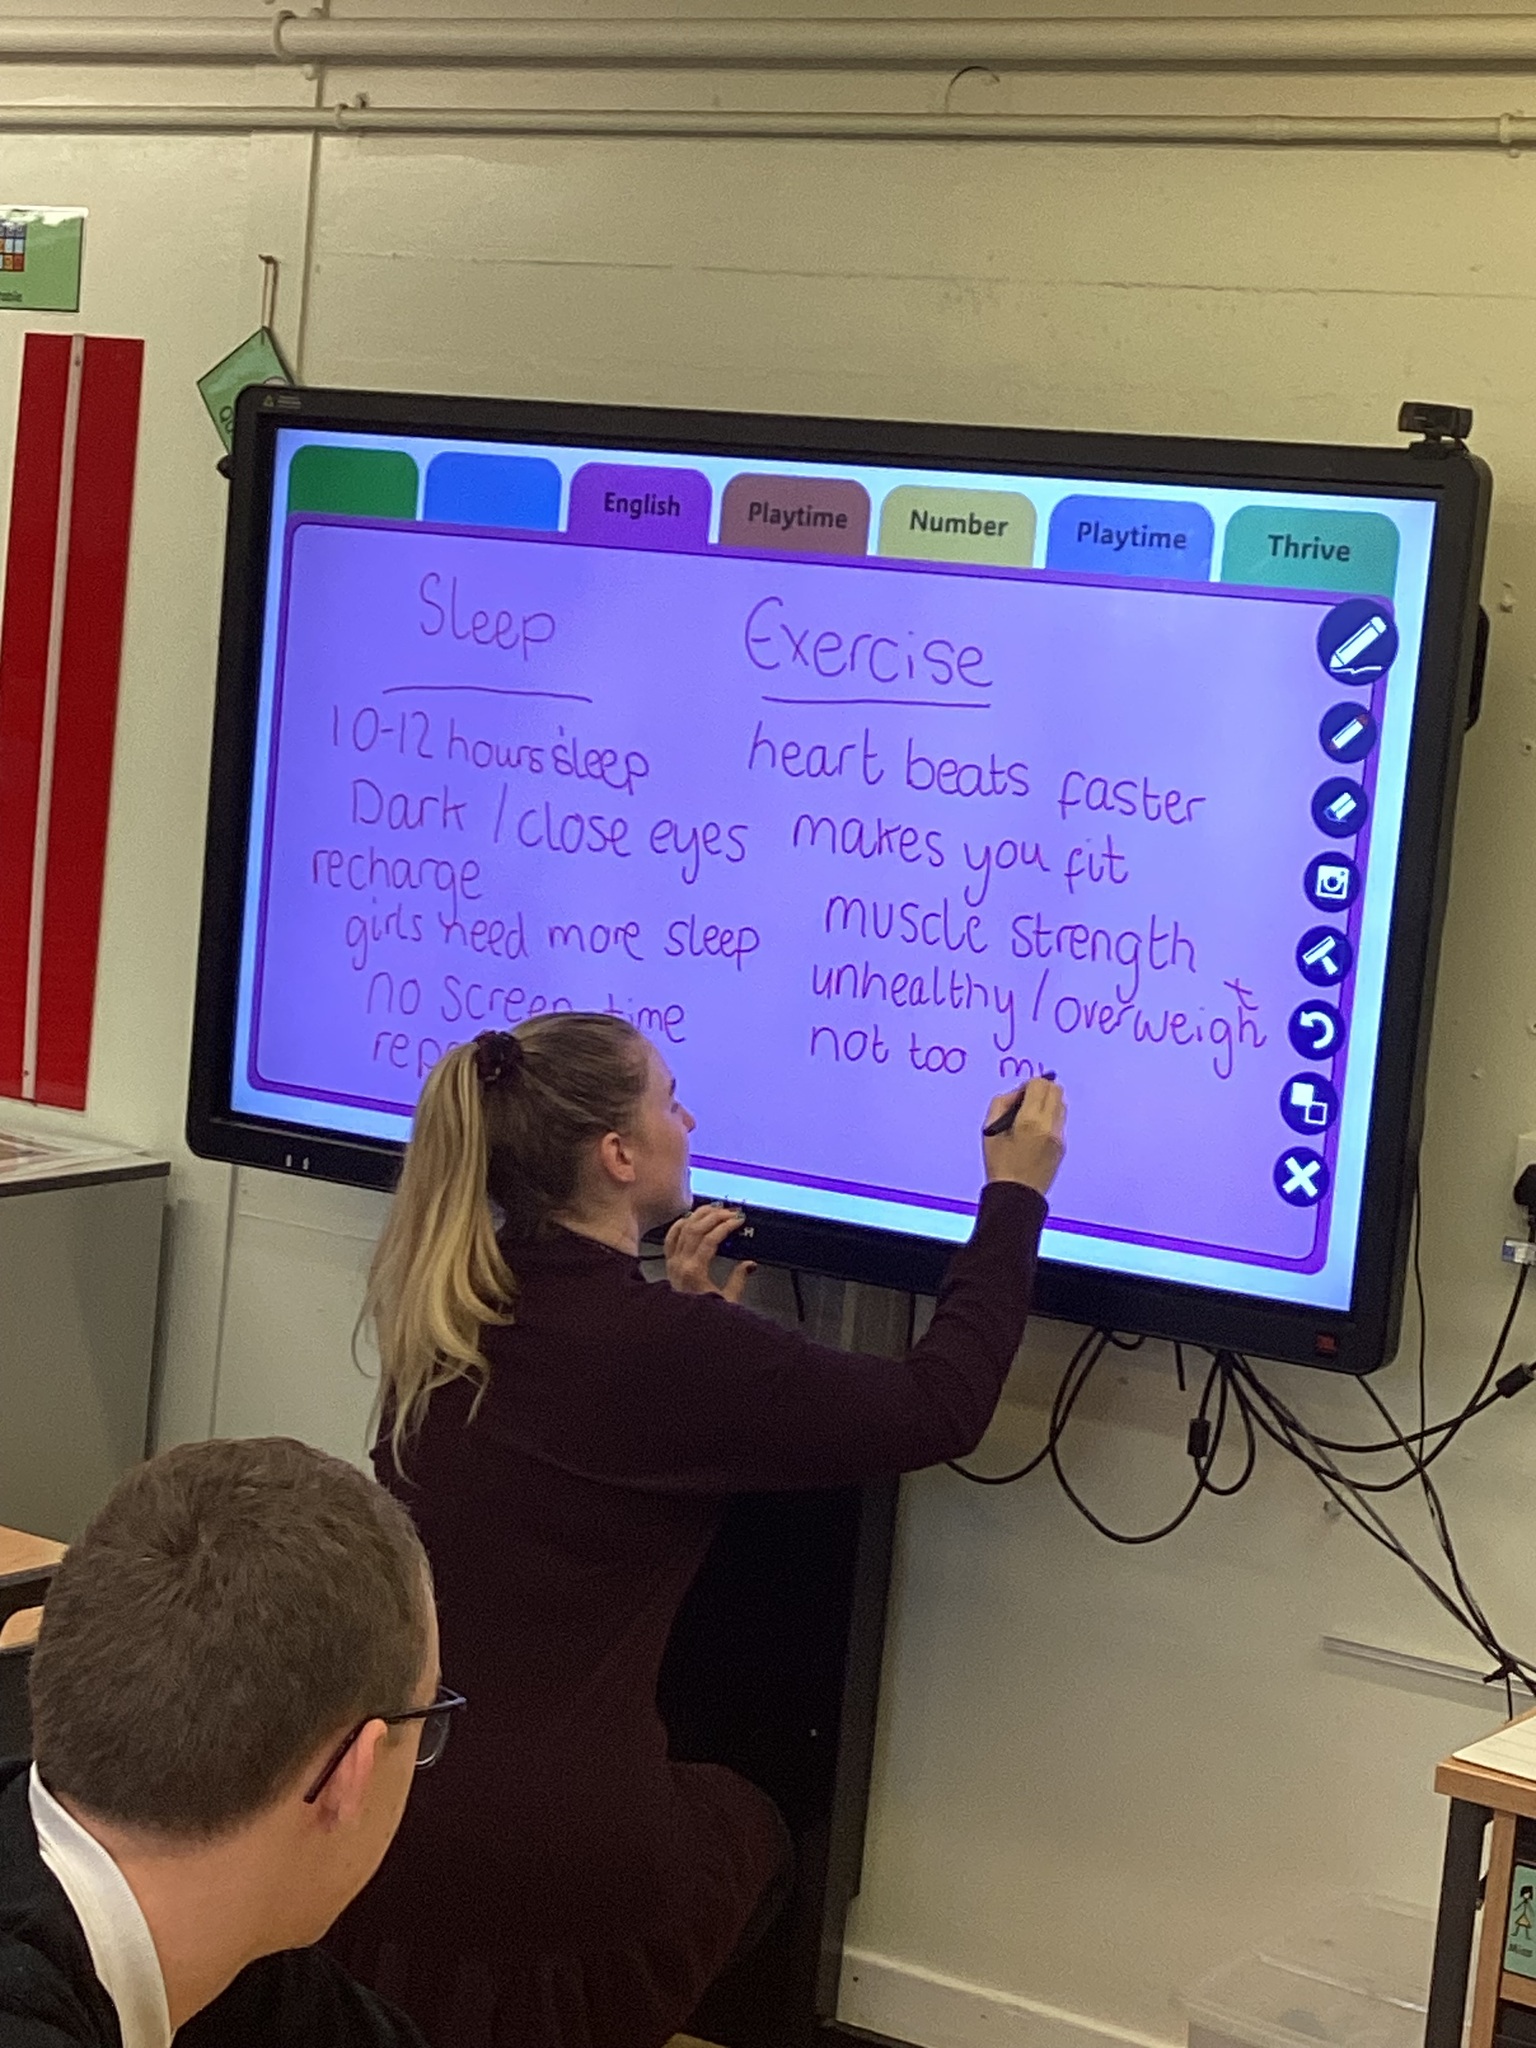 English
Playtime
Number
Playtime
Thrive
Sleep
10-12 hours sleep
Dark / close eyes
recharge
girls need more sleep
no screen time
Exercise
heart beats faster
makes you fit
muscle strength
unhealthy / overweight
not too